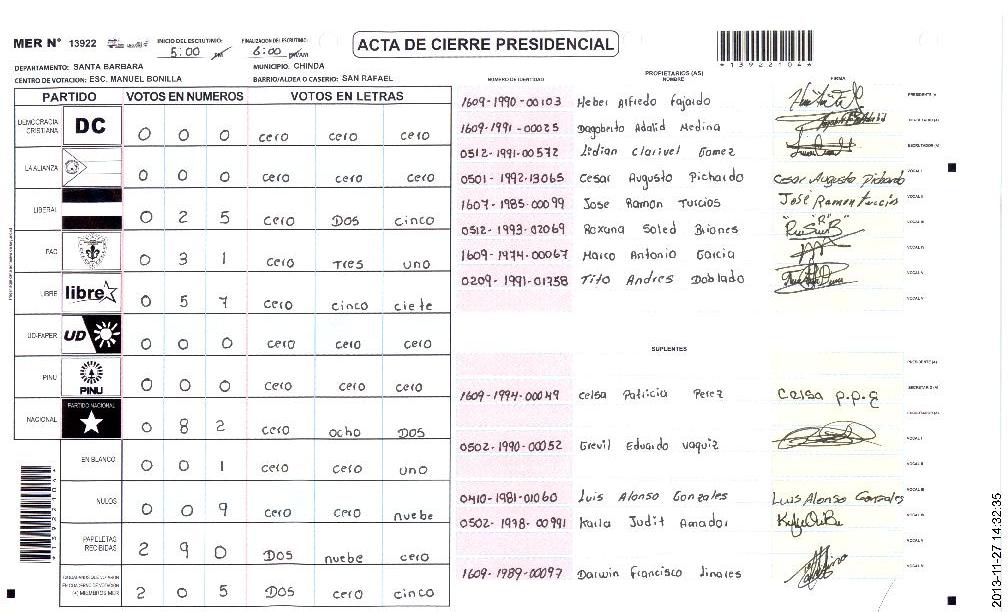 MER Nº 13922
INICIO DEL ESCRUTINIO: 5:00
FINALIZACION DEL ESCRUTINIO: 6:00
ACTA DE CIERRE PRESIDENCIAL
*139221046*
DEPARTAMENTO: SANTA BARBARA MUNICIPIO: CHINDA
CENTRO DE VOTACION: ESC. MANUEL BONILLA BARRIO/ALDEA O CASERIO: SAN RAFAEL
PARTIDO VOTOS EN NUMEROS VOTOS EN LETRAS
DEMOCRACIA CRISTIANA DC 0 0 0 cero cero cero
LA ALIANZA 0 0 0 cero cero cero
LIBERAL 0 2 5 cero DOS cinco
PAC 0 3 1 cero Tres uno
LIBRE libre 0 5 7 cero cinco ciete
UD-FAPER UD 0 0 0 cero cero cero
PINU PINU 0 0 0 cero cero cero
NACIONAL PARTIDO NACIONAL 0 8 2 cero ocho DOS
EN BLANCO 0 0 1 cero cero uno
NULOS 0 0 9 cero cero nuebe
PAPELETAS RECIBIDAS 2 9 0 DOS nuebe cero
CIUDADANOS QUE VOTARON EN CUADERNO DE VOTACION (+) MIEMBROS MER 2 0 5 DOS cero cinco
NUMERO DE IDENTIDAD PROPIETARIOS (AS) NOMBRE FIRMA
1609-1990-00103 Heber Alfredo Fajardo PRESIDENTE (A)
1609-1991-00025 Dagoberto Adalid Medina SECRETARIO (A)
0512-1991-00572 Lidian Clarivel Gomez ESCRUTADOR (A)
0501-1992-13065 Cesar Augusto Pichardo Cesar Augusto Pichardo VOCAL I
1607-1985-00099 Jose Ramon Turcios José Ramon Turcios VOCAL II
0512-1993-02069 Roxana Soled Briones VOCAL III
1609-1974-00067 Marco Antonio Garcia VOCAL IV
0209-1991-01758 Tito Andres Doblado VOCAL V
SUPLENTES
PRESIDENTE (A)
1609-1994-00049 Celsa Patricia Perez Celsa P.P.E SECRETARIO (A)
ESCRUTADOR (A)
0502-1990-00052 Grevil Eduardo Vaquiz VOCAL I
VOCAL II
0410-1981-01060 Luis Alonso Gonzales Luis Alonso Gonzales VOCAL III
0502-1978-00991 Karla Judit Amador VOCAL IV
1609-1989-00097 Darwin Francisco Linares
*139221046*
2013-11-27 14:32:35